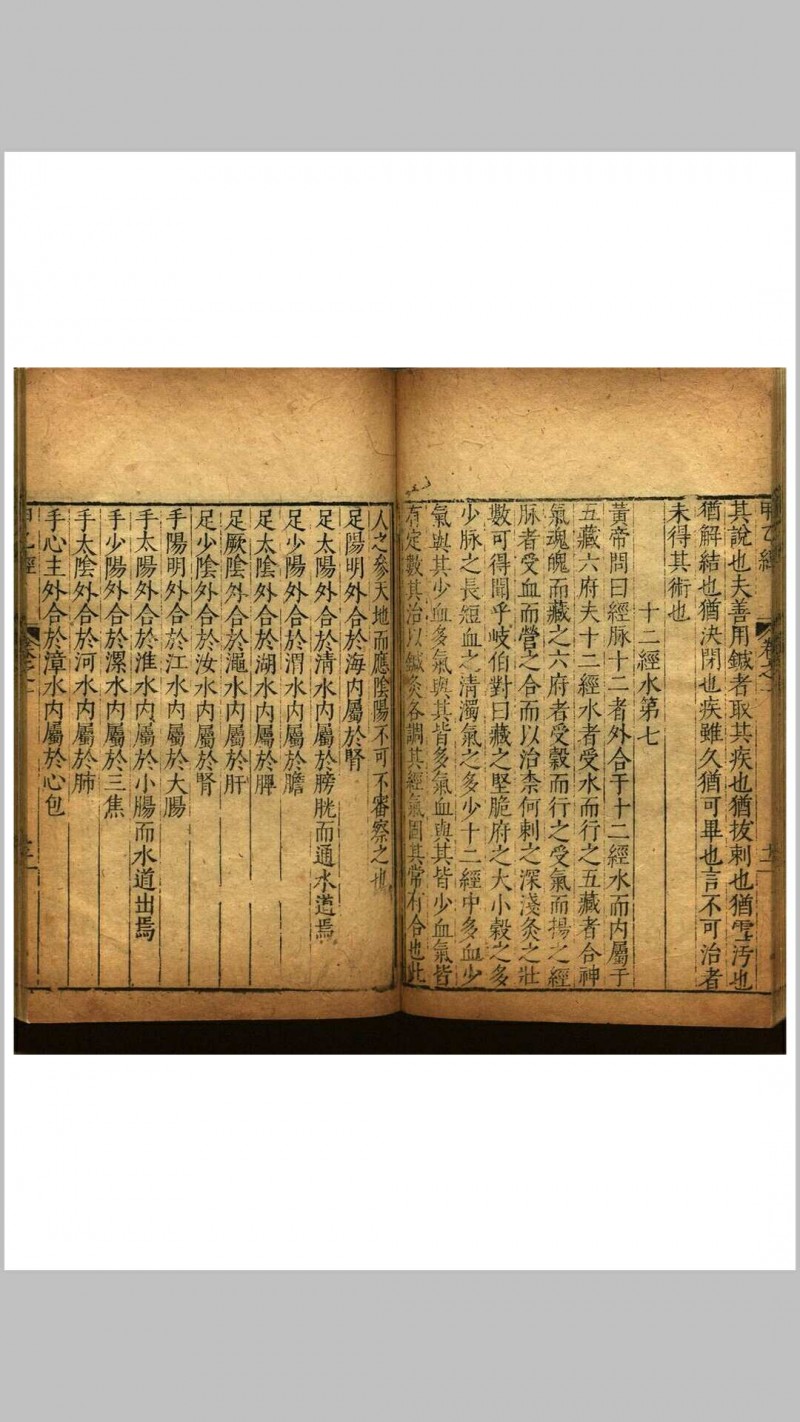 甲乙經 卷之一
其說也夫善用鍼者取其疾也猶拔刺也猶雪汚也
猶解結也猶決閉也疾雖久猶可畢也言不可治者
未得其術也
十二經水第七
黃帝問曰經脉十二者外合于十二經水而内屬于
五藏六府夫十二經水者受水而行之五藏者合神
氣魂魄而藏之六府者受穀而行之受氣而揚之經
脉者受血而營之合而以治柰何刺之深淺灸之壯
數可得聞乎岐伯對曰藏之堅脆府之大小穀之多
少脉之長短血之清濁氣之多少十二經中多血少
氣與其少血多氣與其皆多氣血與其皆少血氣皆
有定數其治以鍼灸各調其經氣固其常有合也此
人之參天地而應陰陽不可不審察之也
足陽明外合於海内屬於腎
足太陽外合於清水内屬於膀胱而通水道焉
足少陽外合於渭水内屬於膽
足太陰外合於湖水内屬於脾
足厥陰外合於澠水内屬於肝
足少陰外合於汝水内屬於腎
手陽明外合於江水内屬於大腸
手太陽外合於淮水内屬於小腸而水道出焉
手少陽外合於漯水内屬於三焦
手太陰外合於河水内屬於肺
手心主外合於漳水内屬於心包
甲乙經